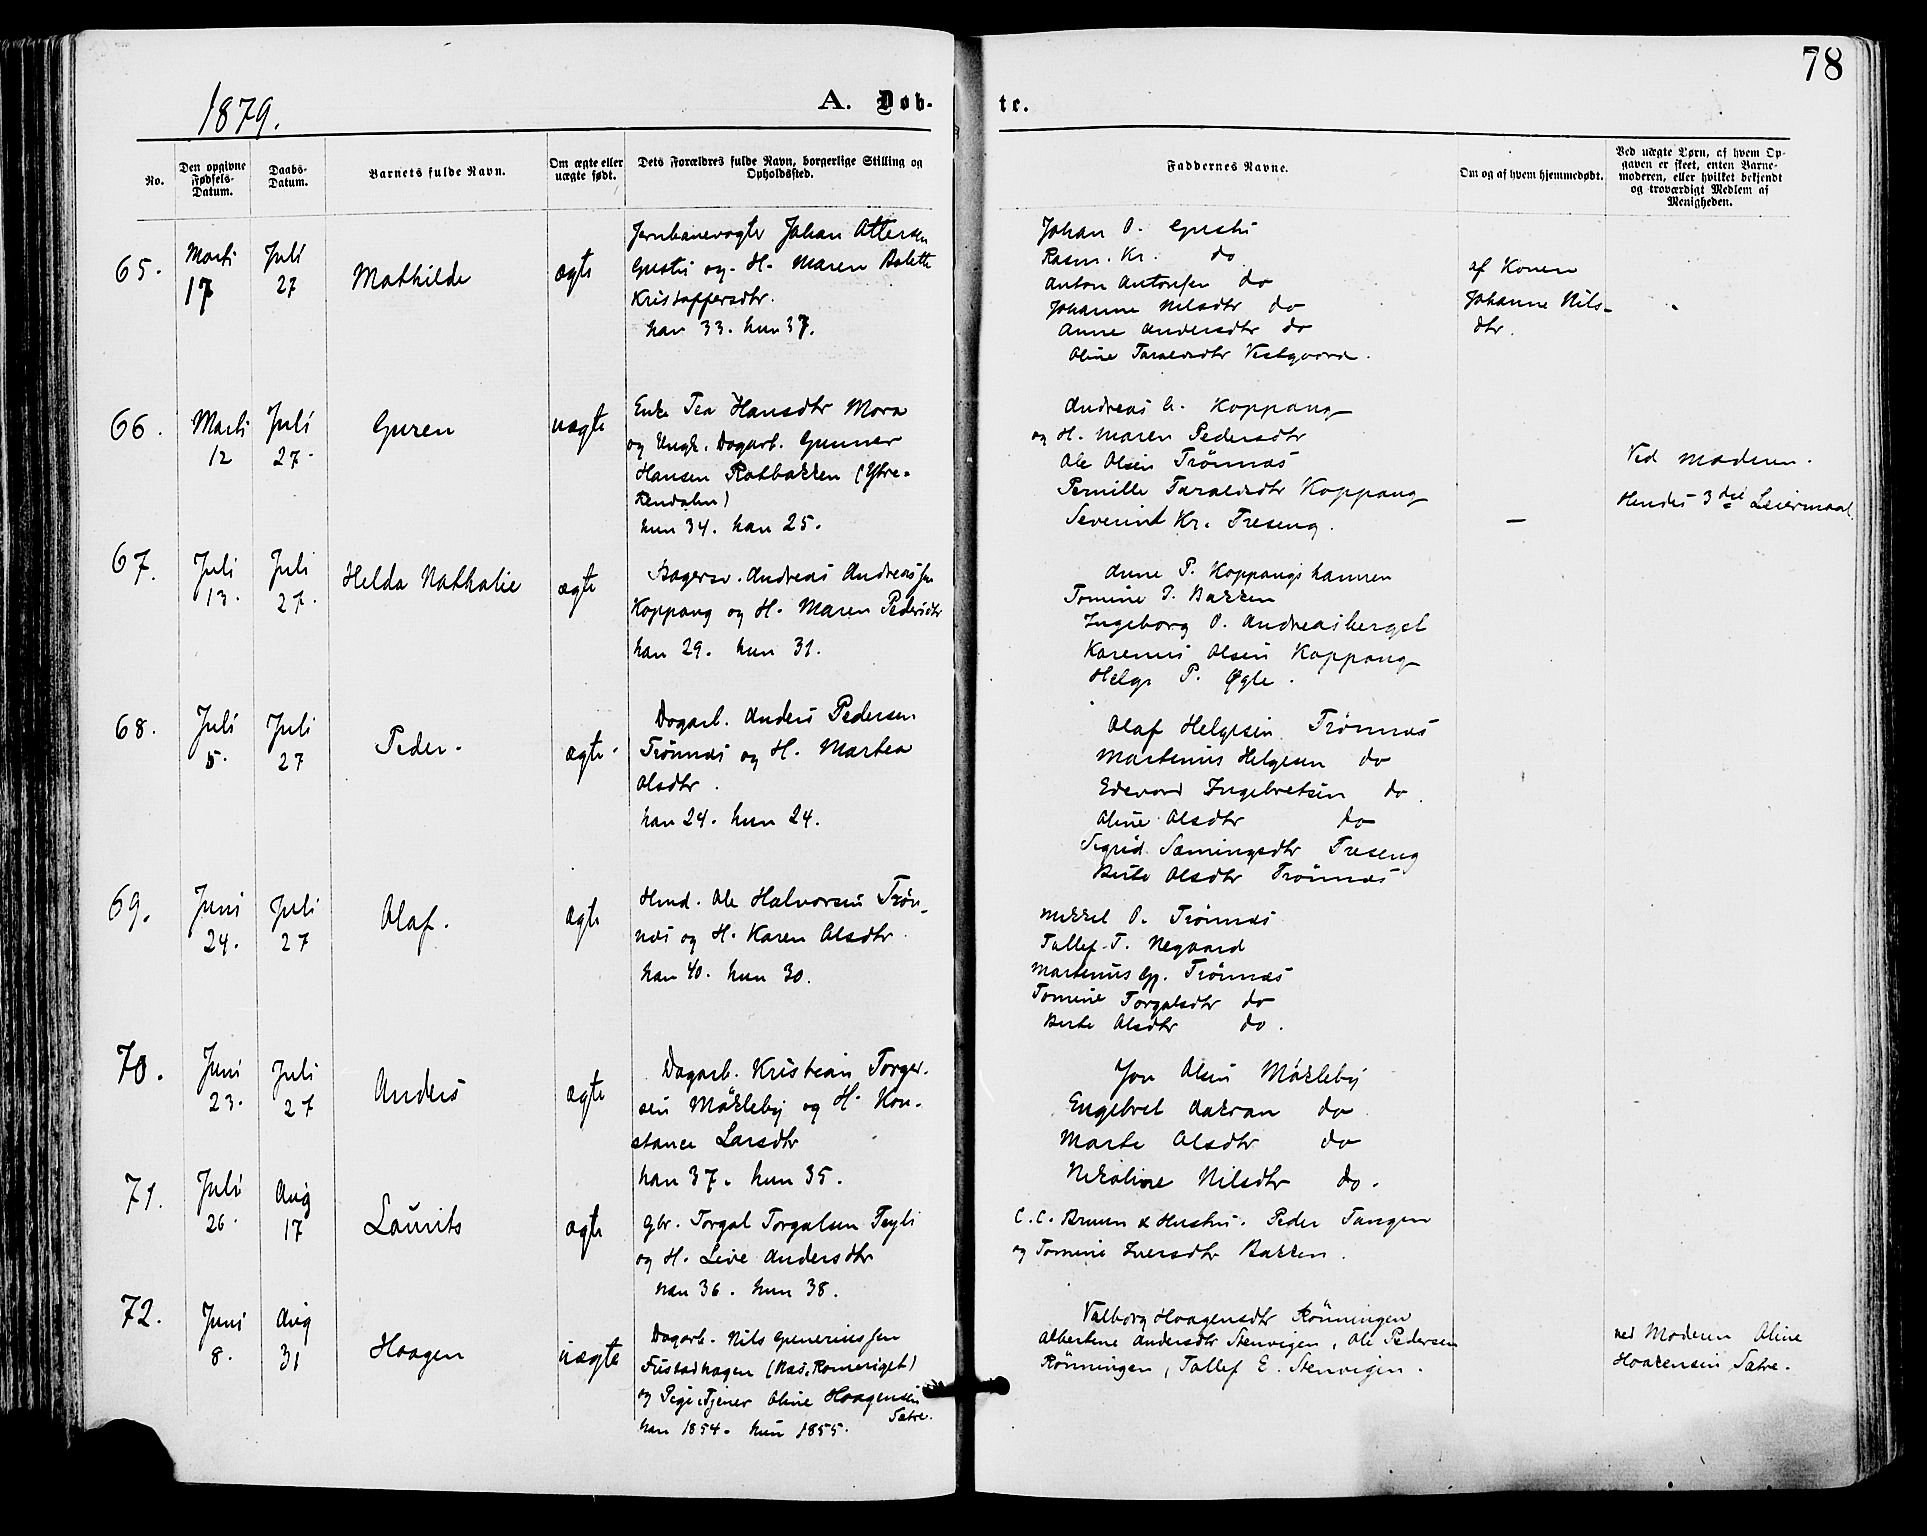 78
1879.
A. Døb-
te.
No.
Den opgivne Fødsels-Datum.
Daabs-Datum.
Barnets fulde Navn.
Om ægte eller uægte født.
Dets Forældres fulde Navn, borgerlige Stilling og Opholdssted.
Faddernes Navne.
Om og af hvem hjemmedøbt.
Ved uægte Børn, af hvem Opgaven er skeet, enten Barnemoderen, eller hvilket bekjendt og troværdigt Medlem af Menigheden.
65.
Marti 17
Juli 27
Mathilde
ægte
Jernbanevogter Johan Ottersen
og H. Maren
Kristoffersdtr.
han 33. hun 37.
Johan O.
Rasm. Kr. do
Anton Antonsen do
Johanne Nilsdtr do
Anne Andersdtr do
Oline Taraldsdtr Vestgaard.
af Konen
Johanne Nils-
dtr.
66.
Marti 12
Juli 27.
Guren
uægte
Enke Tea Hansdtr Mora
og Ungk. Dagarb. Gunner
Hansen (Ytre-
Rendalen)
hun 34. han 25.
Andreas A. Koppang
og H. Maren Pedersdtr
Ole Olsen Trönnæs
Pernille Taraldsdtr Koppang
Severin Kr. Treseng.
—
Ved Moderen.
Hendes 3die Leiermaal.
67.
Juli 13.
Juli 27.
Helda Nathalie
ægte
Andreas Andreassen
Koppang og H. Maren Pedersdtr
han 29. hun 31.
Anne P. Koppangskammen
Tomine P. Bakken
Ingeborg O. Andreasberget
Karenus Olsen Koppang
Helge P. Øgle.
68.
Juli 5.
Juli 27
Peder.
ægte.
Dagarb. Anders Pedersen
Trönnæs og H. Martea
Olsdtr.
han 24. hun 24.
Olaf Helgesen Trönnæs
Martinus Helgesen do
Edevard Ingebretsen do
Oline Olsdtr do
Sigrid Sæmingsdtr Treseng
Berte Olsdtr Trönnæs
69.
Juni 24.
Juli 27
Olaf.
ægte
Hmd. Ole Halvorsen Trön-
næs og H. Karen Olsdtr.
han 40. hun 30.
Mikkel O. Trönnæs
Tollef T. Negaard
Martinus Trönnæs
Tomine Torgalsdtr do
Berte Olsdtr do.
70.
Juni 23.
Juli 27
Anders
ægte
Dagarb. Kristian Torger-
sen Mökleby og H. Kon-
stance Larsdtr
han 37. hun 35.
Jon Olsen Mökleby
Engebret Aakran do
Marte Olsdtr do
Nikoline Nilsdtr do.
71.
Juli 26.
Aug 17
Laurits
ægte
Gbr. Torgal Torgalsen
og H. Live Andersdtr
han 36. hun 38.
C. C. Bruun & Hustru. Peder Tangen
og Tomine Iversdtr Bakken.
72.
Juni 8.
Aug 31
Haagen
uægte
Dagarb. Nils Guneriussen
Fustadhagen (Næs, Romeriget)
og Pige, Tjener Oline Haagensen
Sætre.
han 1854. hun 1855.
Valborg Haagensdtr Rönningen
Albertine Andersdtr Stenvigen, Ole Pedersen
Rönningen, Tollef E. Stenvigen.
ved Moderen Oline
Haakensen Sætre.